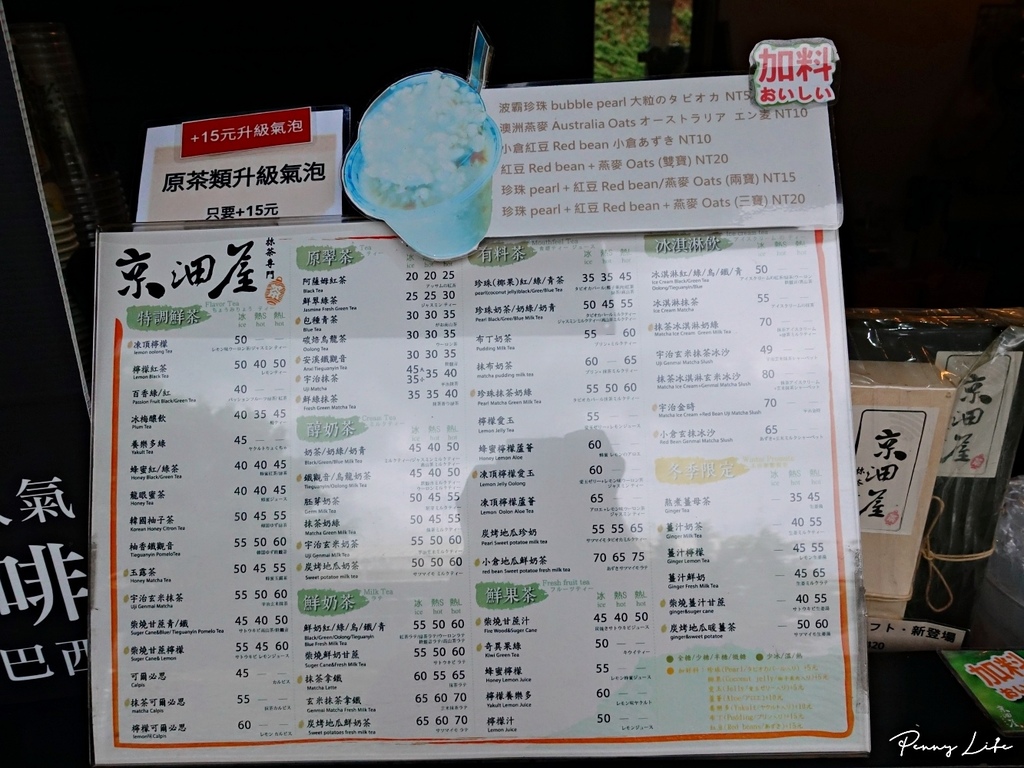 +15元升級氣泡
原茶類升級氣泡
只要+15元
加料
おいしい
波霸珍珠 bubble pearl 大粒のタピオカ NT5
澳洲燕麥 Australia Oats オーストラリア エン麦 NT10
小倉紅豆 Red bean 小倉あずき NT10
紅豆 Red bean + 燕麥 Oats (雙寶) NT20
珍珠 pearl + 紅豆 Red bean/燕麥 Oats (兩寶) NT15
珍珠 pearl + 紅豆 Red bean + 燕麥 Oats (三寶) NT20
京沺屋
抹茶專門
特調鮮茶 Flavor Tea
冰 ice 熱S hot 熱L hot
凍頂檸檬 50 — —
lemon oolong Tea
檸檬紅茶 50 40 50
Lemon Black Tea
百香綠/紅 40 — —
Passion Fruit Black/Green Tea
冰梅釀飲 40 35 45
Plum Tea
養樂多綠 45 — —
Yakult Tea
蜂蜜紅/綠茶 40 40 45
Honey Black/Green Tea
龍眼蜜茶 40 40 45
Honey Tea
韓國柚子茶 50 45 55
Korean Honey Citron Tea
柚香鐵觀音 55 50 60
Tieguanyin PomeloTea
玉露茶 50 45 55
Honey Matcha Tea
宇治玄米抹茶 55 50 60
Uji Genmai Matcha
柴燒甘蔗青/鐵 45 40 50
Suger Cane&Blue/Tieguanyin Pomelo Tea
柴燒甘蔗檸檬 55 45 60
Suger Cane& Lemon
可爾必思 45 — —
Calpis
抹茶可爾必思 55 — —
matcha Calpis
檸檬可爾必思 60 — —
lemon味Calpis
原翠茶
阿薩姆紅茶 20 20 25
Black Tea
鮮翠綠茶 25 25 30
Jasmine Fresh Green Tea
包種青茶 30 30 35
Blue Tea
碳焙烏龍茶 30 30 35
Oolong Tea
安溪鐵觀音 30 30 35
Anxi Tieguanyin Tea
宇治抹茶 45 35 40
Uji Matcha
鮮綠抹茶 35 35 40
Fresh Green Matcha
醇奶茶
奶茶/奶綠/奶青 45 40 50
Black/Green/Blue Milk Tea
鐵觀音/烏龍奶茶 45 40 50
Tieguanyin/Oolong Milk Tea
胚芽奶茶 50 45 55
Germ Milk Tea
抹茶奶綠 50 45 55
Matcha Green Milk Tea
宇治玄米奶茶 55 50 60
Uji Genmai Milk Tea
炭烤地瓜奶茶 50 50 60
Sweet potatoe milk tea
鮮奶茶 Milk Tea
冰 ice 熱S hot 熱L hot
鮮奶紅/綠/烏/鐵/青 55 50 60
Black/Green/Oolong/Tieguanyin
Blue Fresh Milk Tea
柴燒鮮奶甘蔗 55 50 60
Suger Cane&Fresh Milk
抹茶拿鐵 60 55 65
Matcha Latte
玄米抹茶拿鐵 65 60 70
Genmai Matcha Fresh Milk Tea
炭烤地瓜鮮奶茶 65 60 70
Sweet potatoes fresh milk tea
有料茶
珍珠(椰果)紅/綠/青茶 35 35 45
pearl(coconut jelly)black/Gree/Blue Tea
珍珠奶茶/奶綠/奶青 50 45 55
Pearl Black/Gree/Blue Milk Tea
布丁奶茶 55 — 60
Pudding Milk Tea
抹布奶茶 60 — 65
matcha pudding milk tea
珍珠抹茶奶綠 55 50 60
Pearl Matcha Green Milk Tea
檸檬愛玉 55 — —
Lemon Jelly Tea
蜂蜜檸檬蘆薈 60 — —
Honey Lemon Aloe
凍頂檸檬愛玉 60 — —
Lemon Jelly Oolong
凍頂檸檬蘆薈 65 — —
Lemon Oolon Aloe Tea
炭烤地瓜珍奶 55 55 65
Pearl Sweet potatoe milk tea
小倉地瓜鮮奶茶 70 65 75
red bean Sweet potatoe fresh milk tea
鮮果茶 Fresh fruit tea
フルーツティー
冰 ice 熱S hot 熱L hot
柴燒甘蔗汁 45 40 50
Fire Wood&Suger Cane
奇異果綠 50 — —
Kiwi Green Tea
蜂蜜檸檬 55 — —
Honey Lemon Juice
檸檬養樂多 60 — —
Yakult Lemon Juice
檸檬汁 50 — —
Lemon Juice
冰淇淋飲
冰淇淋紅/綠/烏/鐵/青 50 — —
Ice Cream Black/Green
Oolong/Tieguanyin/Blue
冰淇淋抹茶 55 — —
Ice Cream Matcha
抹茶冰淇淋奶綠 70 — —
Matcha Ice Cream Green Milk Tea
宇治玄米抹茶冰沙 49 — —
Uji Genmai Matcha Slush
抹茶冰淇淋玄米冰沙 80 — —
Matcha Ice Cream+Genmai Matcha Slush
宇治金時 70 — —
Matcha Ice Cream +Red Bean Uji Matcha Slush
小倉玄抹冰沙 65 — —
Red Bean Genmai Matcha Slush
冬季限定
熬煮薑母茶 — 35 45
Ginger Tea
薑汁奶茶 — 40 55
Ginger Milk Tea
薑汁檸檬 — 45 55
Ginger Lemon Tea
薑汁鮮奶 — 45 65
Ginger Fresh Milk Tea
柴燒薑汁甘蔗 — 40 55
ginger&suger cane
炭烤地瓜暖薑茶 — 50 60
ginger&sweet potatoe
人氣
啡
巴西
京沺屋
京沺屋
フト・新登場
加料
Penny Life